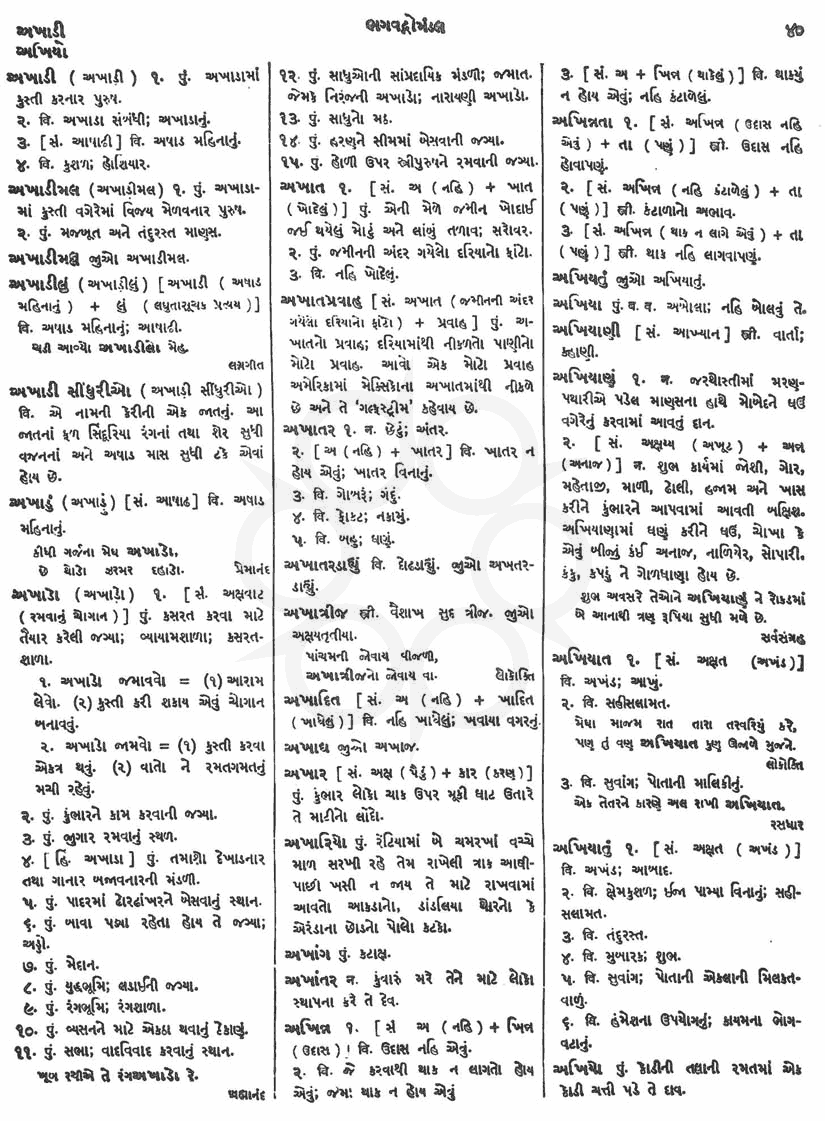 અખાડી
અખિયો
ભગવદ્ગોમંડલ
૪૦
અખાડી ( અખાડી ) ૧. પું. અખાડામાં
કુસ્તી કરનાર પુરુષ.
૨. વિ. અખાડા સંબંધી; અખાડાનું.
૩. [ સં. આષાઢી ] વિ. અષાડ મહિનાનું.
૪. વિ. કુશળ; હોશિયાર.
અખાડીમલ (અખાડીમલ) ૧. પું. અખાડા-
માં કુસ્તી વગેરેમાં વિજય મેળવનાર પુરુષ.
૨. પું. મજબૂત અને તંદુરસ્ત માણસ.
અખાડીમલ્લ જુઓ અખાડીમલ.
અખાડીલું (અખાડીલું) [ અખાડી ( અષાડ
મહિનાનું ) + લું ( લઘુતાસૂચક પ્રત્યય ) ]
વિ. અષાડ મહિનાનું; આષાઢી.
ચડી આવ્યો અખાડીલો મેહ.
લગ્નગીત
અખાડી સીંધુરીઓ ( અખાડી સીંધુરીઓ )
વિ. એ નામની કેરીની એક જાતનું. આ
જાતનાં ફળ સિંદૂરિયા રંગનાં તથા શેર સુધી
વજનનાં અને અષાડ માસ સુધી ટકે એવાં
હોય છે.
અખાડું (અખાડું) [ સં. આષાઢ ] વિ. અષાડ
મહિનાનું.
કીધી ગર્જના મેઘ અખાડો,
છે થોડો ઝરમર દહાડો. પ્રેમાનંદ
અખાડો ( અખાડો ) ૧. [ સં. અક્ષવાટ
( રમવાનું ચોગાન ) ] પું. કસરત કરવા માટે
તૈયાર કરેલી જગ્યા; વ્યાયામશાળા; કસરત-
શાળા.
૧. અખાડો જમાવવો = (૧) આરામ
લેવો. (૨) કુસ્તી કરી શકાય એવું ચોગાન
બનાવવું.
૨. અખાડો જામવો = (૧) કુસ્તી કરવા
એકત્ર થવું. (૨) વાતો ને રમતગમતનું
મચી રહેવું.
૨. પું. કુંભારને કામ કરવાની જગ્યા.
૩. પું. જુગાર રમવાનું સ્થળ.
૪. [ હિં. અખાડા ] પું. તમાશો દેખાડનાર
તથા ગાનાર બજાવનારની મંડળી.
૫. પું. પાદરમાં ઢોરઢાંખરને બેસવાનું સ્થાન.
૬. પું. બાવા પડ્યા રહેતા હોય તે જગ્યા;
અડ્ડો.
૭. પું. મેદાન.
૮. પું. યુદ્ધભૂમિ; લડાઈની જગ્યા.
૯. પું. રંગભૂમિ; રંગશાળા.
૧૦. પું. વ્યસનને માટે એકઠા થવાનું ઠેકાણું.
૧૧. પું. સભા; વાદવિવાદ કરવાનું સ્થાન.
ખૂબ રચીએ તે રંગઅખાડો રે.
બ્રહ્માનંદ
૧૨. પું. સાધુઓની સાંપ્રદાયિક મંડળી; જમાત.
જેમકે નિરંજની અખાડો; નારાયણી અખાડો.
૧૩. પું. સાધુનો મઠ.
૧૪. પું. હરણને સીમમાં બેસવાની જગ્યા.
૧૫. પું. હોળી ઉપર સ્ત્રીપુરુષને રમવાની જગ્યા.
અખાત ૧. [ સં. અ ( નહિ ) + ખાત
( ખોદેલું ) ] પું. એની મેળે જમીન ખોદાઈ
જઈ થયેલું મોટું અને લાંબું તળાવ; સરોવર.
૨. પું. જમીનની અંદર ગયેલો દરિયાનો ફાંટો.
૩. વિ. નહિ ખોદેલું.
અખાતપ્રવાહ [ સં. અખાત ( જમીનની અંદર
ગયેલો દરિયાનો ફાંટો ) + પ્રવાહ ] પું. અ-
ખાતનો પ્રવાહ; દરિયામાંથી નીકળતો પાણીનો
મોટો પ્રવાહ. આવો એક મોટો પ્રવાહ
અમેરિકામાં મેક્સિકોના અખાતમાંથી નીકળે
છે અને તે ‘ગલ્ફસ્ટ્રીમ’ કહેવાય છે.
અખાતર ૧. ન. છેટું; અંતર.
૨. [ અ ( નહિ ) + ખાતર ] વિ. ખાતર ન
હોય એવું; ખાતર વિનાનું.
૩. વિ. ગોબરું; ગંદું.
૪. વિ. ફોકટ; નકામું.
૫. વિ. બહુ; ઘણું.
અખાતરડાહ્યું વિ. દોઢડાહ્યું. જુઓ અખતર-
ડાહ્યું.
અખાત્રીજ સ્ત્રી. વૈશાખ સુદ ત્રીજ. જુઓ
અક્ષયતૃતીયા.
પાંચમની જોવાય વીજળી,
અખાત્રીજનો જોવાય વા. લોકોક્તિ
અખાદિત [ સં. અ ( નહિ ) + ખાદિત
( ખાધેલું ) ] વિ. નહિ ખાધેલું; ખવાયા વગરનું.
અખાદ્ય જુઓ અખાજ.
અખાર [ સં. અક્ષ ( પૈડું ) + કાર ( કરણ ) ]
પું. કુંભાર લોકો ચાક ઉપર મૂકી ઘાટ ઉતારે
તે માટીનો લોંદો.
અખારિયો પું. રેંટિયામાં બે ચમરખાં વચ્ચે
માળ સરખી રહે તેમ રાખેલી ત્રાક આઘી-
પાછી ખસી ન જાય તે માટે રાખવામાં
આવતો આકડાનો, ડાંડલિયા થોરનો કે
એરંડાના છોડનો પોલો કટકો.
અખાંગ પું. કટાક્ષ.
અખાંતર ન. કુંવારું મરે તેને માટે લોકો
સ્થાપના કરે તે દેવ.
અખિન્ન ૧. [ સં અ ( નહિ ) + ખિન્ન
( ઉદાસ ) ] વિ. ઉદાસ નહિ એવું.
૨. વિ. જે કરવાથી થાક ન લાગતો હોય
એવું; જેમાં થાક ન હોય એવું
૩. [ સં. અ + ખિન્ન ( થાકેલું ) ] વિ. થાક્યું
ન હોય એવું; નહિ કંટાળેલું.
અખિન્નતા ૧. [ સં. અખિન્ન ( ઉદાસ નહિ
એવું ) + તા ( પણું ) ] સ્ત્રી. ઉદાસ નહિ
હોવાપણું.
૨. [ સં. અખિન્ન ( નહિ કંટાળેલું ) + તા
( પણું ) ] સ્ત્રી. કંટાળાનો અભાવ.
૩. [ સં. અખિન્ન ( થાક ન લાગે એવું ) + તા
( પણું ) ] સ્ત્રી. થાક નહિ લાગવાપણું.
અખિયતું જુઓ અખિયાતું.
અખિયા પું. બ. વ. અબોલા; નહિ બોલવું તે.
અખિયાણી [ સં. આખ્યાન ] સ્ત્રી. વાર્તા;
કહાણી.
અખિયાણું ૧. ન. જરથોસ્તીમાં મરણ-
પથારીએ પડેલ માણસના હાથે મોબેદને ઘઉં
વગેરેનું કરવામાં આવતું દાન.
૨. [ સં. અક્ષય્ય ( અખૂટ ) + અન્ન
(અનાજ) ] ન. શુભ કાર્યમાં જોશી, ગોર,
મહેતાજી, માળી, ઢોલી, હજામ અને ખાસ
કરીને કુંભારને આપવામાં આવતી બક્ષિશ.
અખિયાણામાં ઘણું કરીને ઘઉં, ચોખા કે
એવું બીજું કંઈ અનાજ, નાળિયેર, સોપારી,
કંકુ, કપડું ને ગોળધાણા હોય છે.
શુભ અવસરે તેઓને અખિયાણું ને રોકડમાં
બે આનાથી ત્રણ રૂપિયા સુધી મળે છે.
સર્વસંગ્રહ
અખિયાત ૧. [ સં. અક્ષત (અખંડ) ]
વિ. અખંડ; આખું.
૨. વિ. સહીસલામત.
મેઘા માજમ રાત તારા તરવરિયું કરે,
પણ તું વણ અખિયાત કુણ ઊજળે મુજને.
લોકોક્તિ
૩. વિ. સુવાંગ; પોતાની માલિકીનું.
એક તેતરને કારણે અલ રાખી અખિયાત.
રસધાર
અખિયાતું ૧. [ સં. અક્ષત ( અખંડ ) ]
વિ. અખંડ; આબાદ.
૨. વિ. ક્ષેમકુશળ; ઈજા પામ્યા વિનાનું; સહી-
સલામત.
૩. વિ. તંદુરસ્ત.
૪. વિ. મુબારક; શુભ.
૫. વિ. સુવાંગ; પોતાની એકલાની મિલકત-
વાળું.
૬. વિ. હંમેશના ઉપયોગનું; કાયમના ભોગ-
વટાનું.
અખિયો પું. કોડીની તલાની રમતમાં એક
કોડી ચત્તી પડે તે દાવ.